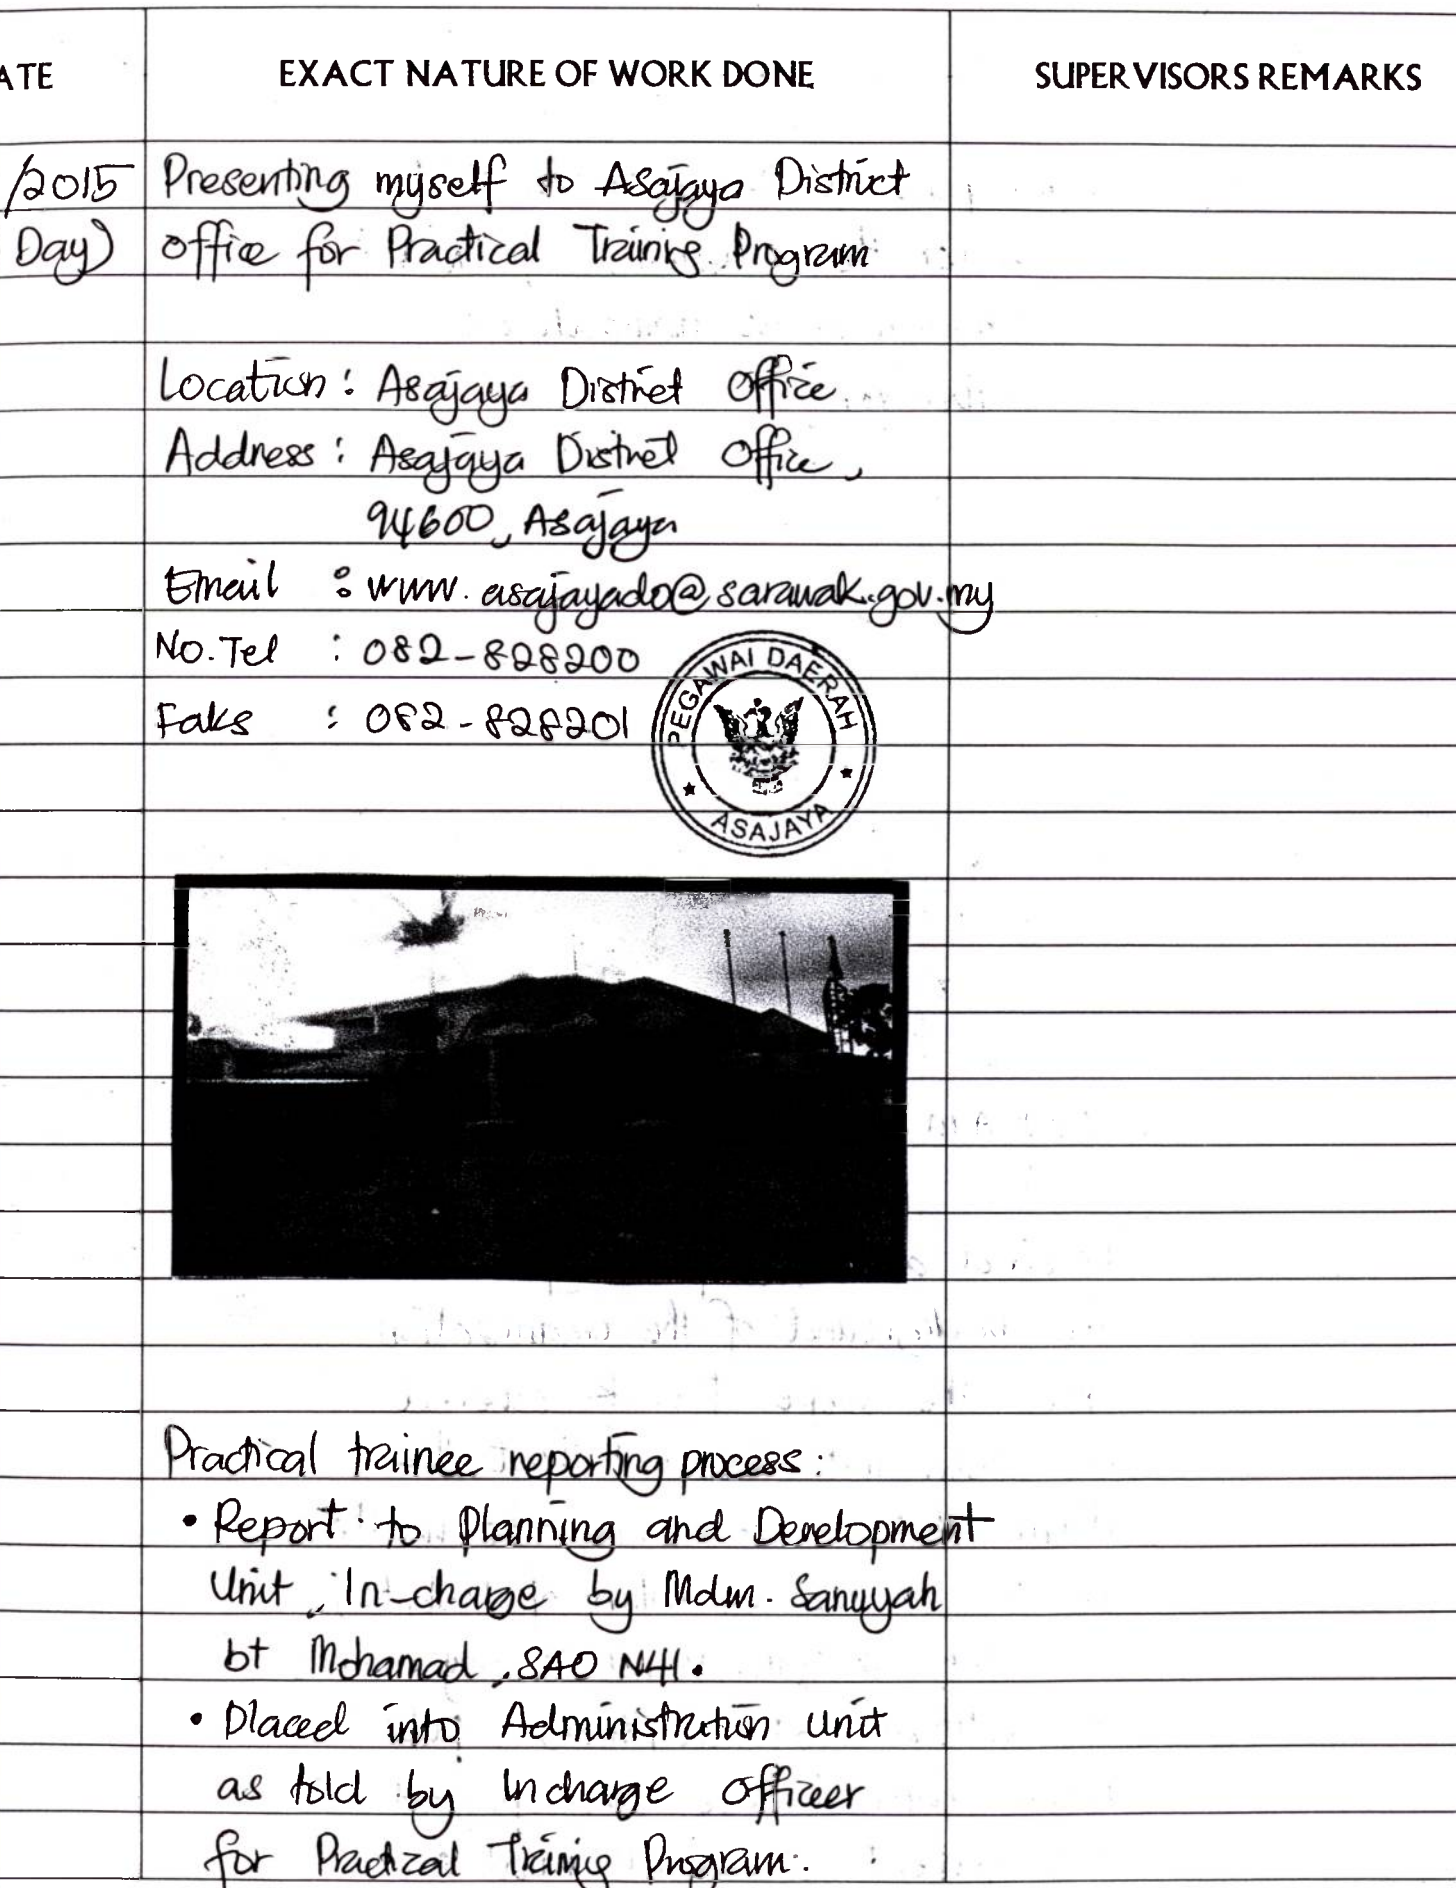 ATE EXACT NATURE OF WORK DONE SUPERVISORS REMARKS
/2015 Presenting myself to Asajaya District
Day) office for Practical Training Program
Location : Asajaya District Office
Address : Asajaya District Office,
94600, Asajaya
Email : www.asajayado@sarawak.gov.my
No. Tel : 082-828200
Faks : 082-828201
PEGAWAI DAERAH
ASAJAYA
Practical trainee reporting process :
• Report to Planning and Development
Unit, In-charge by Mdm. Sanuyah
bt Mohamad, SAO N41.
• Placed into Administration unit
as told by Incharge officer
for Practical Training Program.